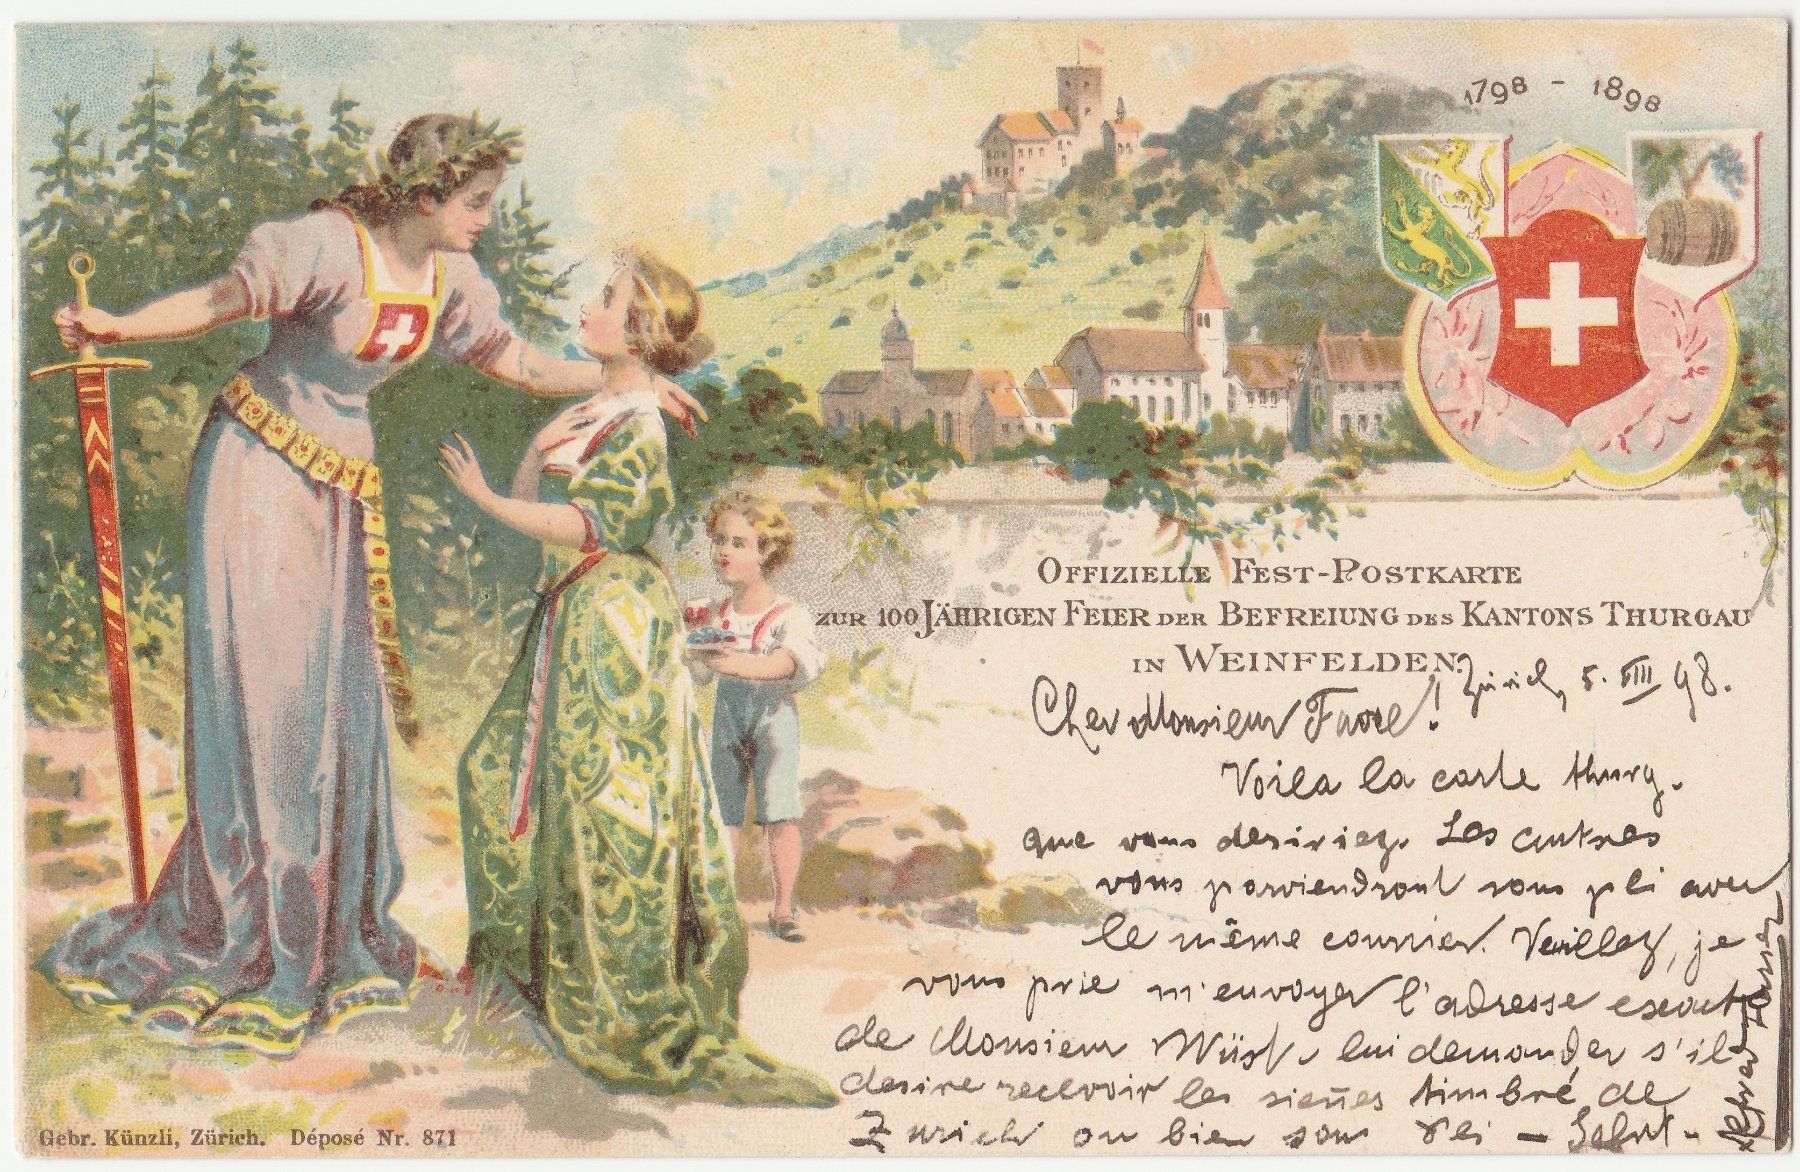 1798 - 1898
OFFIZIELLE FEST-POSTKARTE
ZUR 100 JÄHRIGEN FEIER DER BEFREIUNG DES KANTONS THURGAU
IN WEINFELDEN.
Zürich, 5. VIII 98.
Cher Monsieur Favre!
Voila la carte thurg.
que vous desiriez. Les autres
vous parviendront sous pli avec
le même courrier. Veuillez, je
vous prie m'envoyer l'adresse exact
de Monsieur Wüst, lui demander s'il
desire recevoir les siennes timbré de
Zurich ou bien sous pli - Salut -
Alfred
Gebr. Künzli, Zürich. Déposé Nr. 871